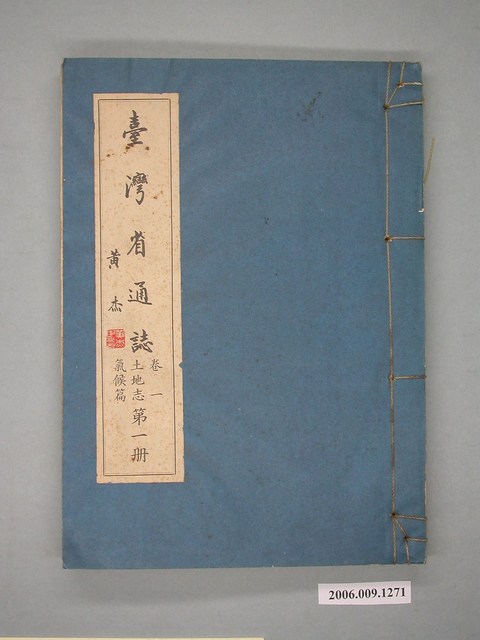 臺灣省通誌
黃杰
卷一
土地志
氣候篇
第一册
2006.009.1271